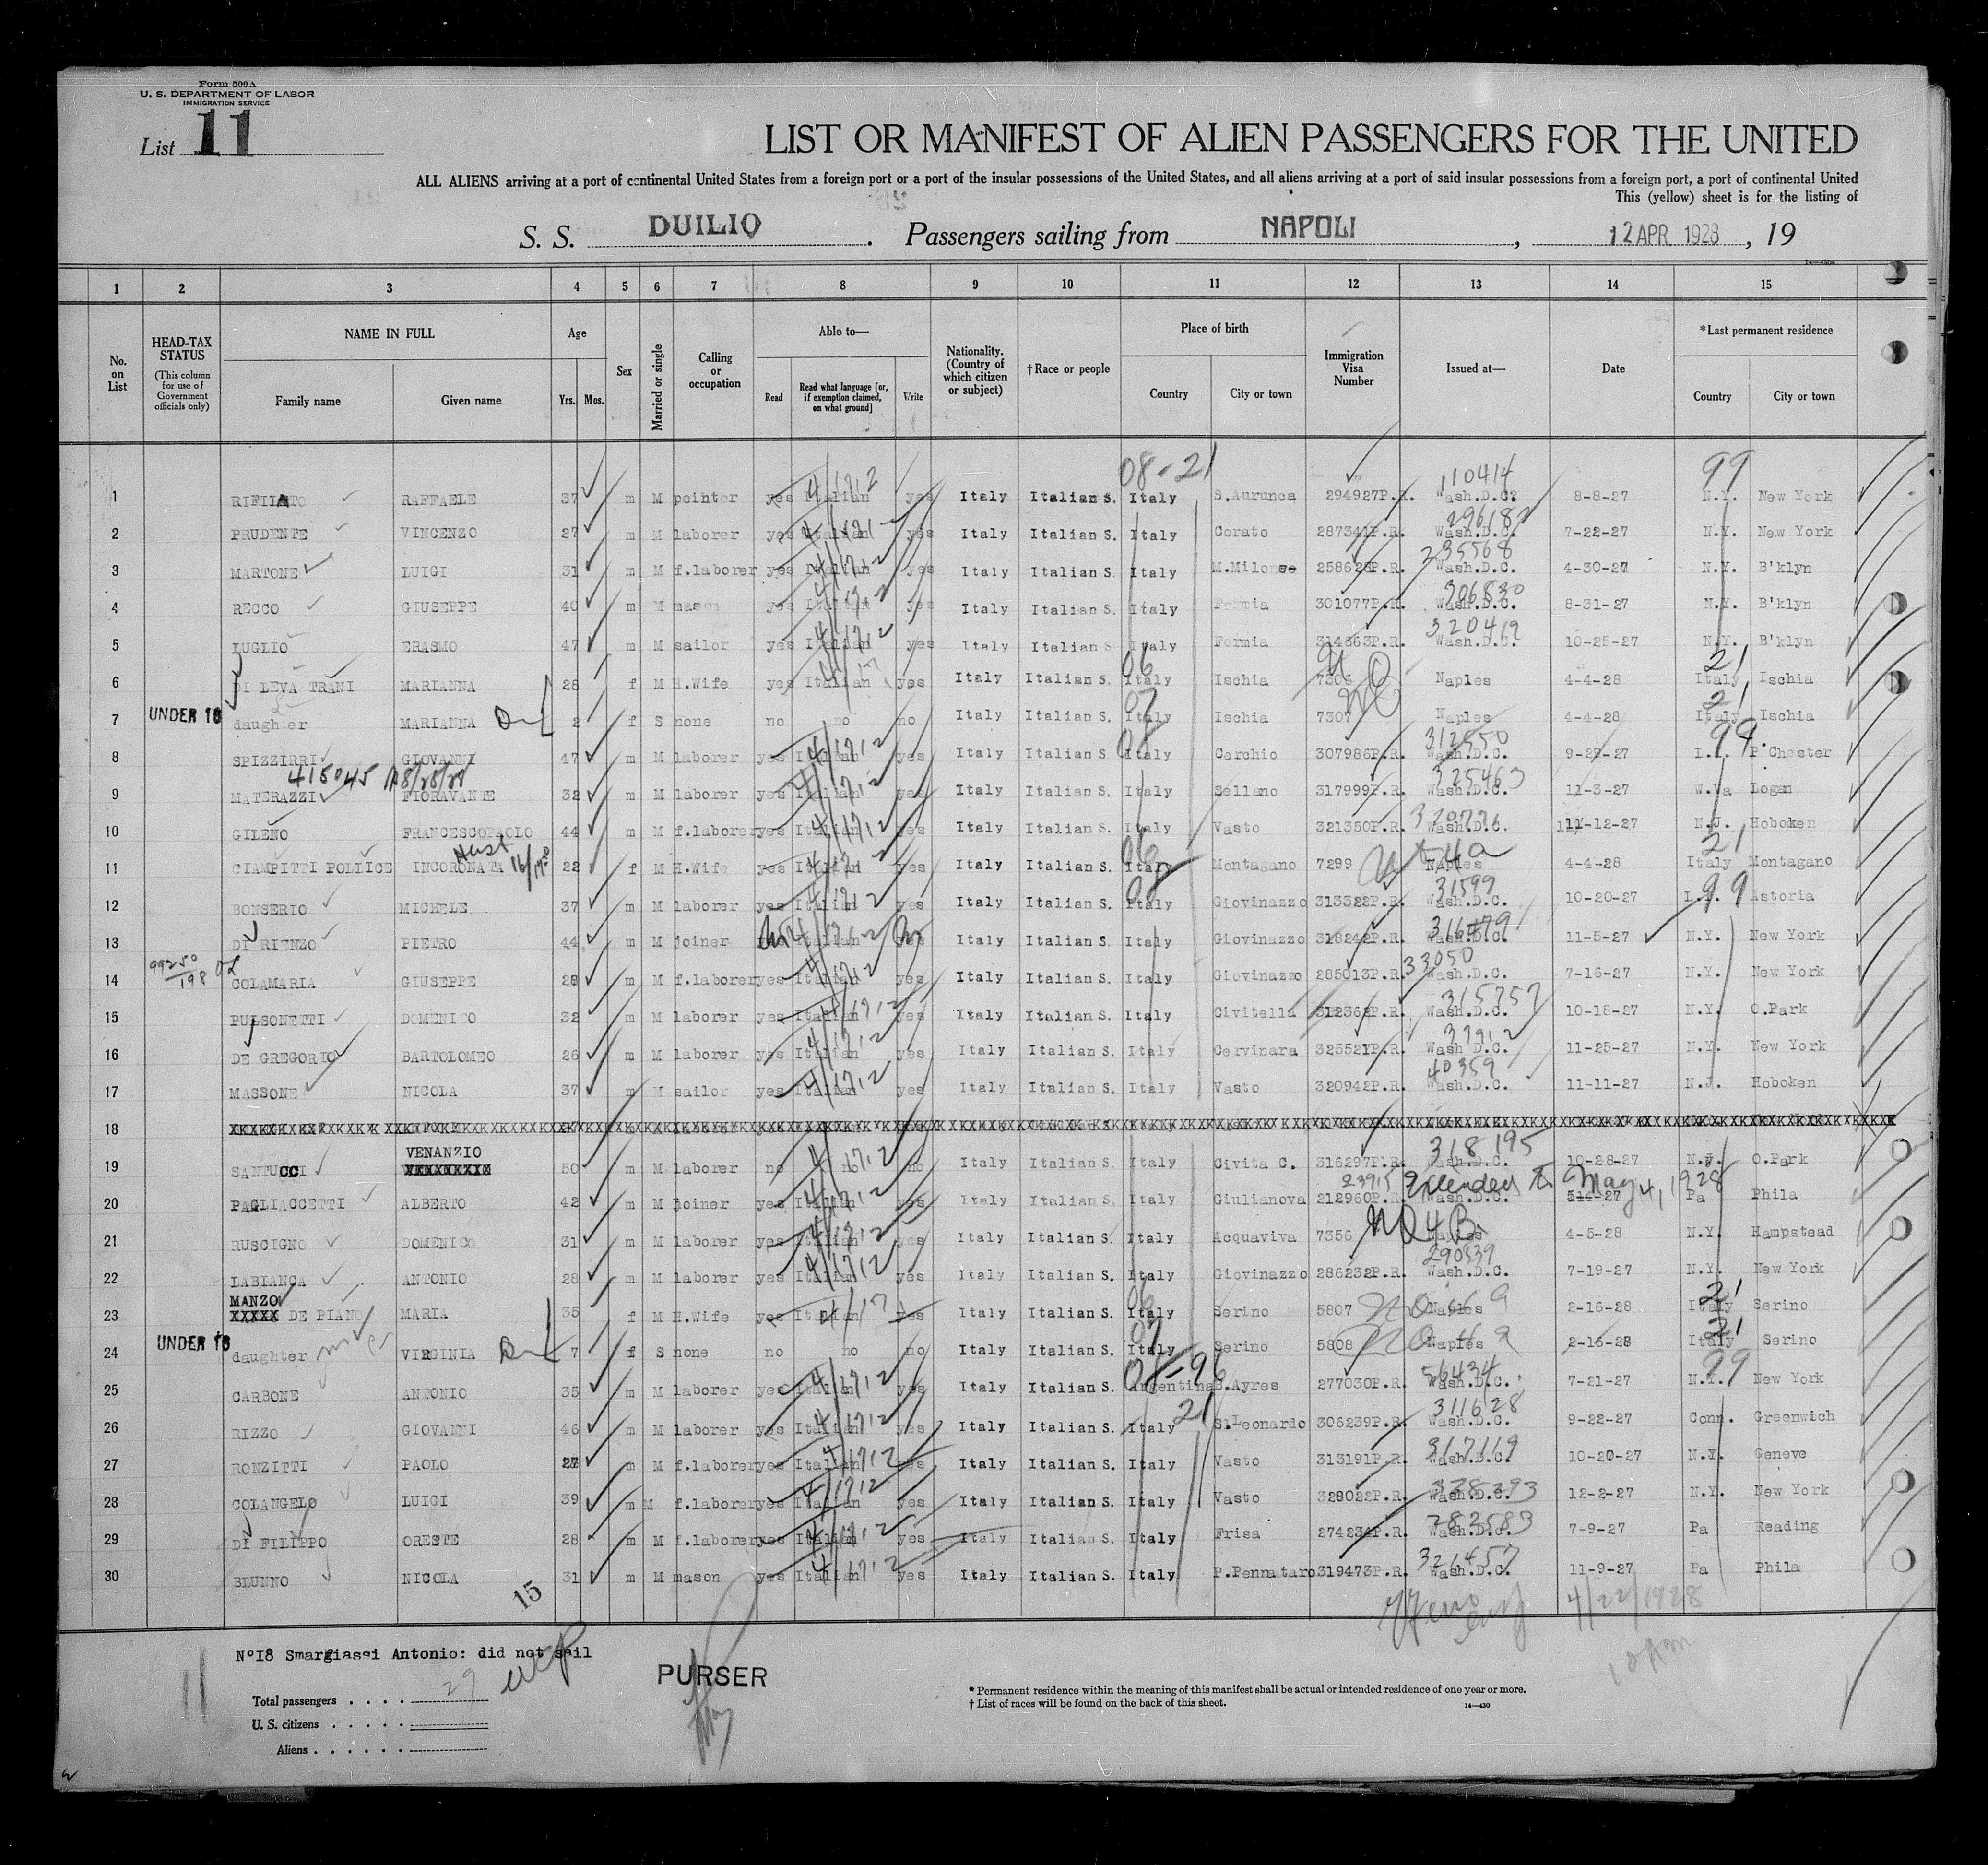 Form 500A
U. S. DEPARTMENT OF LABOR
IMMIGRATION SERVICE
List 11
LIST OR MANIFEST OF ALIEN PASSENGERS FOR THE UNITED
ALL ALIENS arriving at a port of continental United States from a foreign port or a port of the insular possessions of the United States, and all aliens arriving at a port of said insular possessions from a foreign port, a port of continental United
This (yellow) sheet is for the listing of
S. S. DUILIO . Passengers sailing from NAPOLI , 12 APR 1928 , 19
1 2 3 4 5 6 7 8 9 10 11 12 13 14 15
No. on List
HEAD-TAX STATUS (This column for use of Government officials only)
NAME IN FULL
Family name Given name
Age
Yrs. Mos.
Sex
Married or single
Calling or occupation
Able to—
Read
Read what language [or, if exemption claimed, on what ground]
Write
Nationality. (Country of which citizen or subject)
†Race or people
Place of birth
Country City or town
Immigration Visa Number
Issued at—
Date
*Last permanent residence
Country City or town
08-21 110414 99
1 RIFILATO RAFFAELE 37 m M peinter yes Italian yes Italy Italian S. Italy S.Aurunca 294927P.R. Wash.D.C. 8-8-27 N.Y. New York
296182
2 PRUDENTE VINCENZO 27 m M laborer yes Italian yes Italy Italian S. Italy Corato 287341P.R. Wash.D.C. 7-22-27 N.Y. New York
235568
3 MARTONE LUIGI 31 m M f.laborer yes Italian yes Italy Italian S. Italy M.Milonse 258626P.R. Wash.D.C. 4-30-27 N.Y. B'klyn
306830
4 RECCO GIUSEPPE 40 m M mason yes Italian yes Italy Italian S. Italy Formia 301077P.R. Wash.D.C. 8-31-27 N.Y. B'klyn
320419
5 LUGLIO ERASMO 47 m M sailor yes Italian yes Italy Italian S Italy Formia 314363P.R. Wash.D.C. 10-25-27 N.Y. B'klyn
06 21
6 DI LEVA TRANI MARIANNA 28 f M H.Wife yes Italian yes Italy Italian S. Italy Ischia 7306 Naples 4-4-28 Italy Ischia
07 21
7 UNDER 16 daughter MARIANNA 2 f S none no no no Italy Italian S. Italy Ischia 7307 Naples 4-4-28 Italy Ischia
312550 99
8 SPIZZIRRI GIOVANNI 47 m M laborer yes Italian yes Italy Italian S. Italy Cerchio 307986P.R. Wash.D.C. 9-29-27 P Chester
415045 325463
9 MATERAZZI FIORAVANTE 32 m M laborer yes Italian yes Italy Italian S. Italy Sellano 317999P.R. Wash.D.C. 11-3-27 W.Va Logan
10 GILENO FRANCESCOPAOLO 44 m M f.laborer yes Italian yes Italy Italian S. Italy Vasto 321350P.R. Wash.D.C. 11-12-27 N.J. Hoboken
06 21
11 CIAMPITTI POLLICE INCORONATA 22 f M H.Wife yes Italian yes Italy Italian S. Italy Montagano 7299 Naples 4-4-28 Italy Montagano
31599 99
12 BONSERIO MICHELE 37 m M laborer yes Italian yes Italy Italian S. Italy Giovinazzo 313322P.R. Wash.D.C. 10-20-27 L.I. Astoria
316479
13 DI RIENZO PIETRO 44 m M joiner yes Italian yes Italy Italian S. Italy Giovinazzo 318242P.R. Wash.D.C. 11-5-27 N.Y. New York
99250/198 33050
14 COLAMARIA GIUSEPPE 28 m M f.laborer yes Italian yes Italy Italian S. Italy Giovinazzo 285013P.R. Wash.D.C. 7-16-27 N.Y. New York
315757
15 PULSONETTI DOMENICO 32 m M laborer yes Italian yes Italy Italian S. Italy Civitella 312362P.R. Wash.D.C. 10-18-27 N.Y. O.Park
33912
16 DE GREGORIO BARTOLOMEO 26 m M laborer yes Italian yes Italy Italian S. Italy Cervinara 325521P.R. Wash D.C. 11-25-27 N.Y. New York
40359
17 MASSONE NICOLA 37 m M sailor yes Italian yes Italy Italian S. Italy Vasto 320942P.R. Wash.D.C. 11-11-27 N.J. Hoboken
18
VENANZIO 318195
19 SANTUCCI 50 m M laborer no no no Italy Italian S. Italy Civita C. 316297P.R. Wash.D.C. 10-28-27 O.Park
23915 Extended to May 4, 1928
20 PAGLIACCETTI ALBERTO 42 m M joiner yes Italian yes Italy Italian S. Italy Giulianova 212960P.R. Wash.D.C. Pa Phila
21 RUSCIGNO DOMENICO 31 m M laborer yes Italian yes Italy Italian S. Italy Acquaviva 7356 Naples 4-5-28 N.Y. Hampstead
290539
22 LABIANCA ANTONIO 28 m M laborer yes Italian yes Italy Italian S. Italy Giovinazzo 286232P.R. Wash.D.C. 7-19-27 N.Y. New York
MANZO 06 21
23 XXXXX DE PIANO MARIA 35 f M H.Wife yes Italian yes Italy Italian S. Italy Serino 5807 Naples 2-16-28 Italy Serino
07 21
24 UNDER 16 daughter VIRGINIA 7 f S none no no no Italy Italian S. Italy Serino 5808 Naples 2-16-28 Italy Serino
08-96 56434 99
25 CARBONE ANTONIO 35 m M laborer yes Italian yes Italy Italian S. Argentina B.Ayres 277030P.R. Wash.D.C. 7-21-27 N.Y. New York
21 311628
26 RIZZO GIOVANNI 46 m M laborer yes Italian yes Italy Italian S. Italy S.Leonardo 306239P.R. Wash.D.C. 9-22-27 Conn. Greenwich
317119
27 RONZITTI PAOLO m M f.laborer yes Italian yes Italy Italian S. Italy Vasto 313191P.R. Wash.D.C. 10-20-27 N.Y. Geneve
328393
28 COLANGELO LUIGI 39 m M f.laborer yes Italian yes Italy Italian S. Italy Vasto 328022P.R. Wash.D.C. 12-2-27 N.Y. New York
282583
29 DI FILIPPO ORESTE 28 m M f.laborer yes Italian yes Italy Italian S. Italy Frisa 274234P.R. Wash.D.C. 7-9-27 Pa Reading
326457
30 BLUNNO NICOLA 31 m M mason yes Italian yes Italy Italian S. Italy P.Pennataro 319473P.R. Wash.D.C. 11-9-27 Pa Phila
15
4/22/1928
10 AM
Nº18 Smargiassi Antonio: did not sail
PURSER
Total passengers . . . . 29
U. S. citizens . . . . .
Aliens . . . . . .
* Permanent residence within the meaning of this manifest shall be actual or intended residence of one year or more.
† List of races will be found on the back of this sheet.
14—430